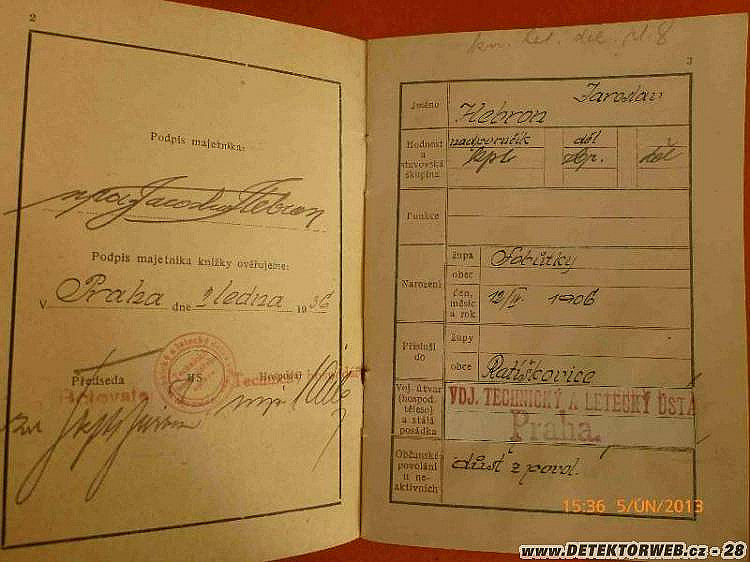 2
Podpis majetníka:
Jaroslav Hebron
Podpis majetníka knížky ověřujeme:
V Praha dne ledna 1936
Předseda HS. Hospodář
kn. let. děl. pl. 8
3
Jméno Hebron Jaroslav
Hodnost a stavovská skupina nadporučík děl
kpt. děl
Funkce
Narození župa Sobůlky
obec
čen, měsíc a rok 12/IV. 1906
Přísluší do župy
obce Ratíškovice
Voj. útvar (hospod. těleso) a stálá posádka VOJ. TECHNICKÝ A LETECKÝ ÚSTA
Praha.
Občanské povolání u ne-aktivních důst z povol.
15:36 5/ÚN/2013
www.DETEKTORWEB.cz - 28